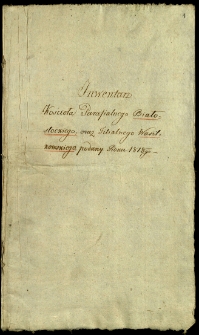 Inwentarz
Kościoła Parafialnego Biało-
stockiego, oraz Filialnego Wasil-
kowskiego podany Roku 1818go